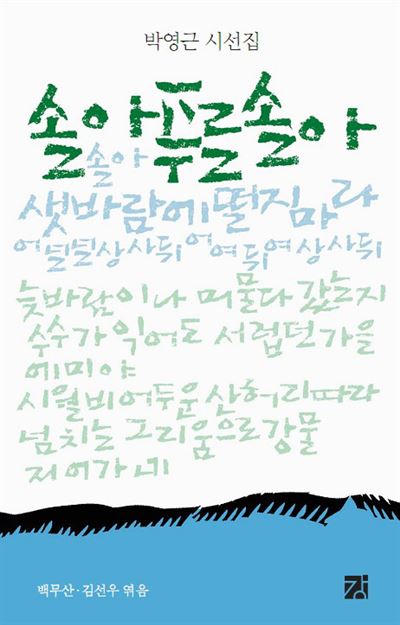 박영근 시선집
솔아 푸른 솔아
솔아
샛바람에 떨지 마라
어널널 상사뒤 어여뒤여 상사뒤
늦바람이나 머물다 갔는지
수수가 익어도 서럽던 가을
에미야
시월비 어두운 산허리 따라
넘치는 그리움으로 강물
저어가네
백무산·김선우 엮음